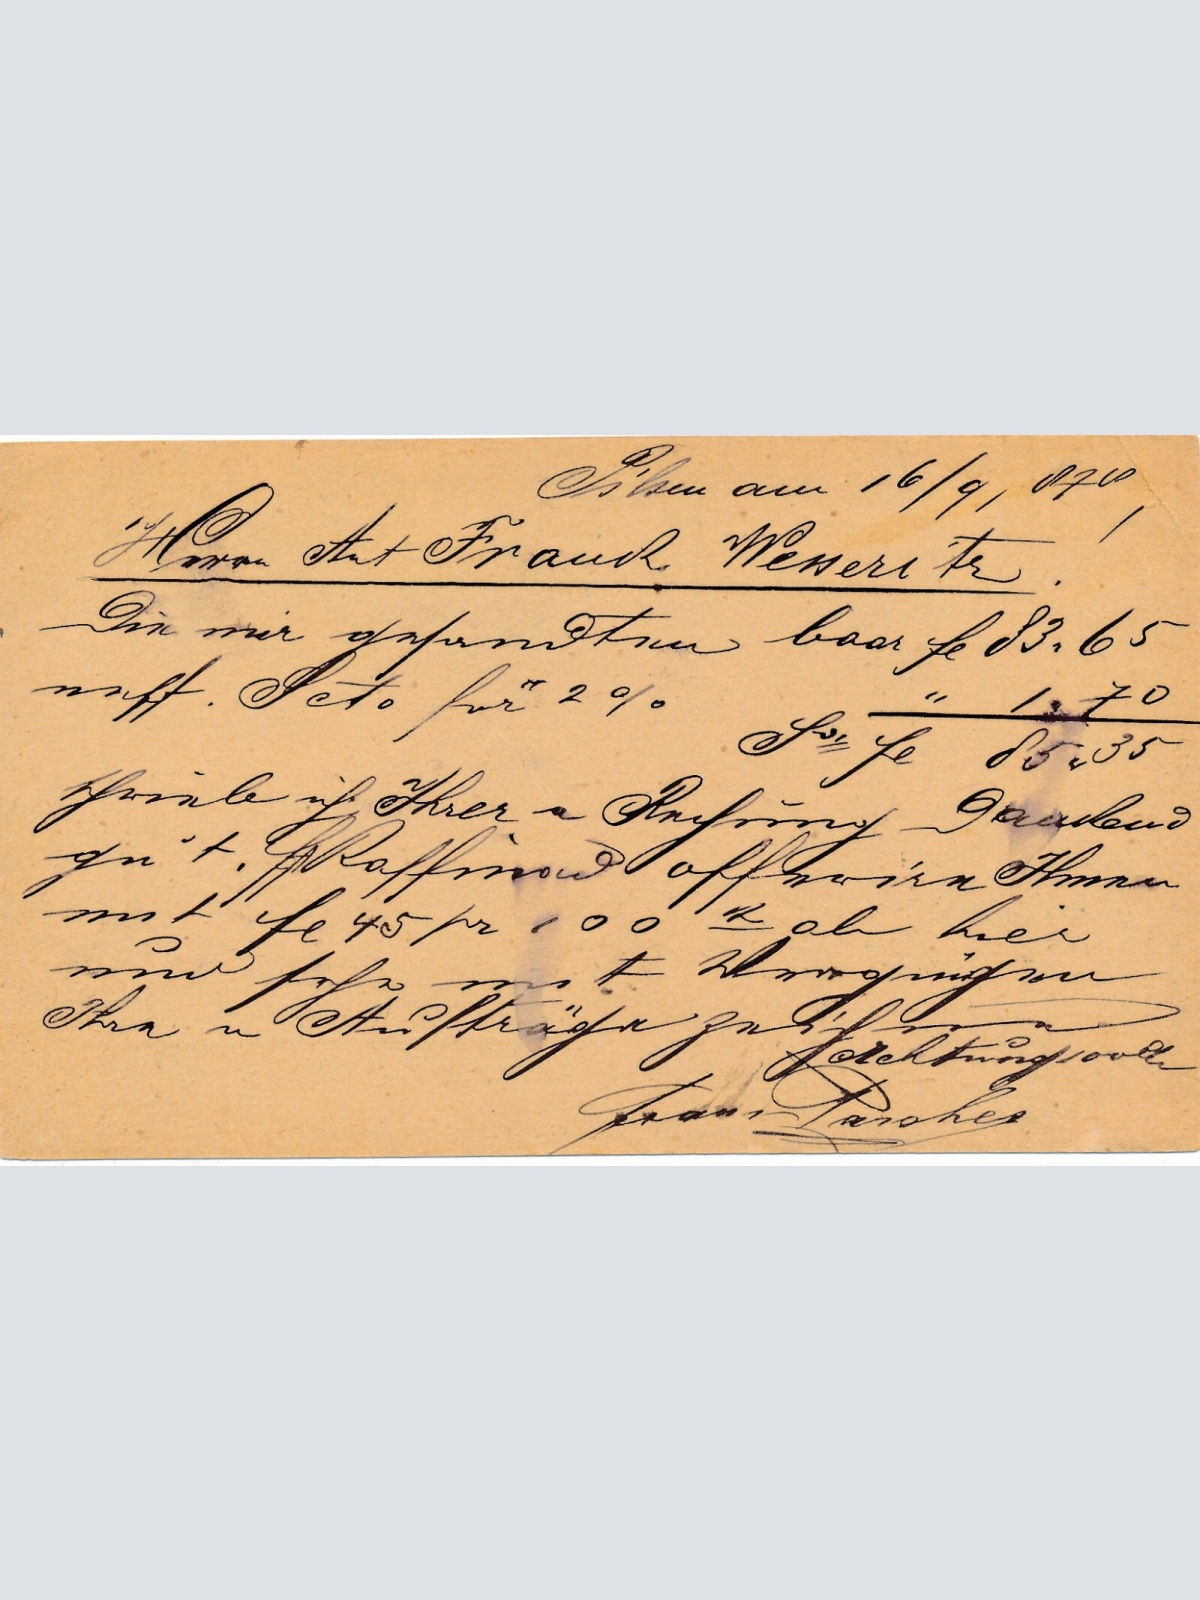 Pilsen am 16/9, 878,
Herrn Ant Franck Weseritz !
Die mir gesandten baar fe 83.65
nebst Scto für 2% " 1.70
fe 85.35
schrieb ich Ihrer w Rechnung Dankend
gut. ff Raffinad offerire Ihnen
mit fe 45 pr 100 K ab hier
und sehe mit Vergnügen
Ihre w Aufträge
Achtungsvoll
Franz